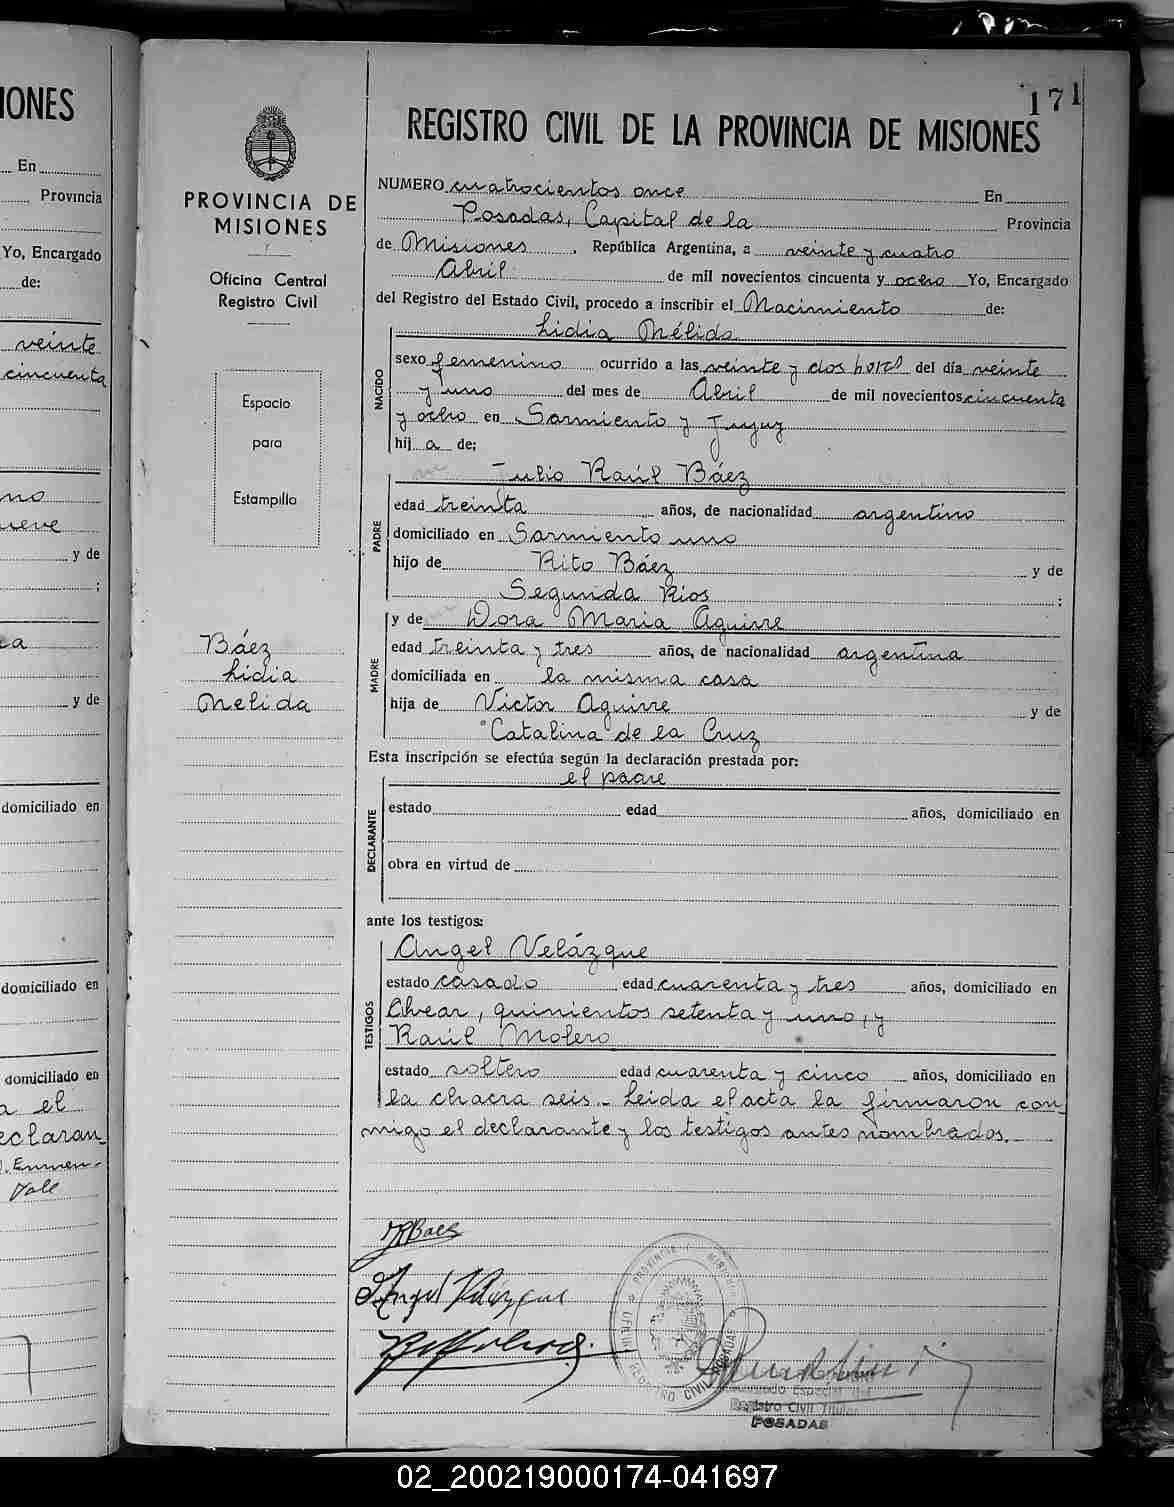 IONES
En
Provincia
Yo, Encargado
de:
veinte
cincuenta
no
ueve
y de
;
ea
y de
domiciliado en
domiciliado en
domiciliado en
a el
eclaran_
171
REGISTRO CIVIL DE LA PROVINCIA DE MISIONES
PROVINCIA DE
MISIONES
Oficina Central
Registro Civil
Espacio
para
Estampilla
Báez
Lidia
Nelida
NUMERO cuatrocientos once En
Posadas, Capital de la Provincia
de Misiones, República Argentina, a veinte y cuatro
Abril de mil novecientos cincuenta y ocho Yo, Encargado
del Registro del Estado Civil, procedo a inscribir el Nacimiento de:
NACIDO
Lidia Nélida
sexo femenino ocurrido a las veinte y dos horas del día veinte
y uno del mes de Abril de mil novecientos cincuenta
y ocho en Sarmiento y Jujuy
hij a de;
PADRE
Julio Raúl Báez
edad treinta años, de nacionalidad argentino
domiciliado en Sarmiento uno
hijo de Rito Báez y de
Segunda Rios ;
MADRE
y de Dora Maria Aguirre
edad treinta y tres años, de nacionalidad argentina
domiciliada en la misma casa
hija de Victor Aguirre y de
Catalina de la Cruz
Esta inscripción se efectúa según la declaración prestada por:
DECLARANTE
el padre
estado edad años, domiciliado en
obra en virtud de
ante los testigos:
TESTIGOS
Angel Velázque
estado casado edad cuarenta y tres años, domiciliado en
Alvear, quinientos setenta y uno, y
Raúl Molero
estado soltero edad cuarenta y cinco años, domiciliado en
la chacra seis_ Leida el acta la firmaron con_
migo el declarante y los testigos antes nombrados._
JRBaez
Angel Velázque
Registro Civil Titular
POSADAS
02_200219000174-041697